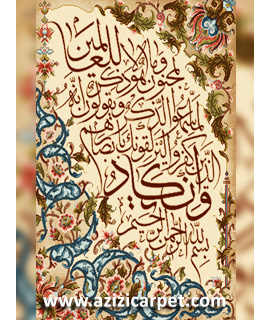 بسم الله الرحمن الرحيم
وان يكاد
الذين كفروا ليزلقونك بابصارهم
لما سمعوا الذكر ويقولون انه
لمجنون وما هو الا ذكر
للعالمين
www.azizicarpet.com